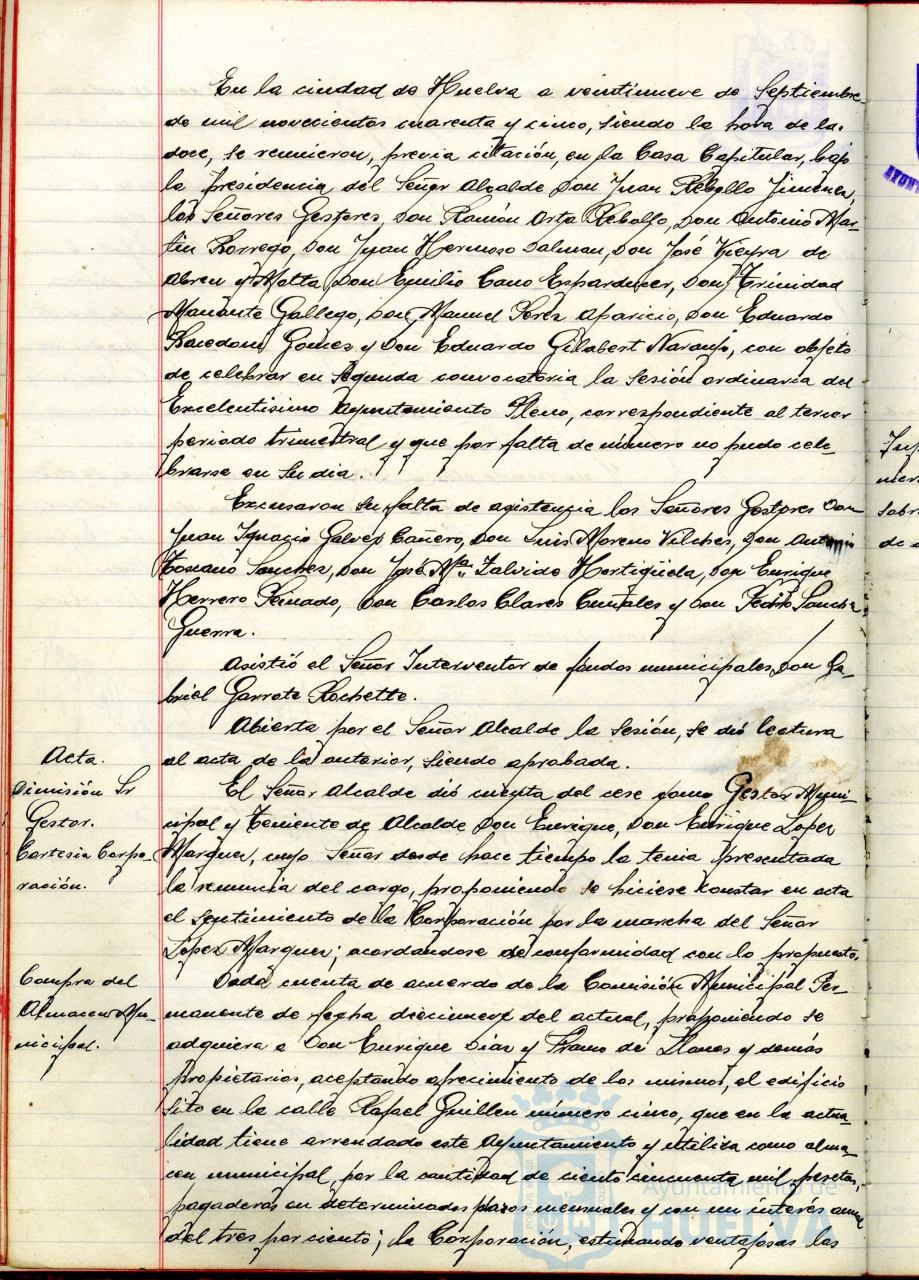 En la ciudad de Huelva a veintinueve de Septiembre
de mil novecientos cuarenta y cinco, siendo la hora de la
doce, se reunieron, previa citación, en la Casa Capitular, bajo
la presidencia del Señor Alcalde Don Juan Rebollo Jimenez,
los Señores Gestores, Don Ramón Orta Rebollo, Don Antonio Mar-
tin Borrego, Don Juan Hermoso Dalman, Don José Vieyra de
Abreu y Motta, Don Emilio Cano Esparducer, Don Trinidad
Gallego, Don Manuel Perez Aparicio, Don Eduardo
Gomez y Don Eduardo Gilabert Naranjo, con objeto
de celebrar en segunda convocatoria la sesión ordinaria del
Excelentisimo Ayuntamiento Pleno, correspondiente al tercer
periodo trimestral y que por falta de número no pudo cele-
brarse en su dia.
Excusaron su falta de asistencia los Señores Gestores Don
Juan Ignacio Galvez Cañero, Don Luis Moreno Vilches, Don Antonio
Toscano Sanchez, Don José Mª. Zalvide Hortigüela, Don Enrique
Herrero Peinado, Don Carlos Clares y Don Pedro Sanchez
Guerra.
Asistió el Señor Interventor de fondos municipales, Don Ga-
briel Garrote Rochette.
Abierta por el Señor Alcalde la sesión, se dió lectura
al acta de la anterior, siendo aprobada.
Acta.
Dimisión Sr
Gestor.
Cortesia Corpo-
ración.
El Señor Alcalde dió cuenta del cese como Gestor Muni-
cipal y Teniente de Alcalde Don Enrique, Don Enrique Lopez
Marquez, cuyo Señor desde hace tiempo la tenia presentada
la renuncia del cargo, proponiendo se hiciese constar en acta
el sentimiento de la Corporación por la marcha del Señor
Lopez Marquez; acordandose de conformidad con lo propuesto.
Compra del
Almacen Mu-
nicipal.
Dada cuenta de acuerdo de la Comisión Municipal Per-
manente de fecha diecinueve del actual, proponiendo se
adquiera a Don Enrique Diaz y Franco de Llanos y demás
propietarios, aceptando ofrecimiento de los mismos, el edificio
sito en la calle Rafael Guillen número cinco, que en la actua-
lidad tiene arrendado este Ayuntamiento y utiliza como alma-
cen municipal, por la cantidad de ciento cincuenta mil pesetas,
pagaderas en determinados plazos mensuales y con un interés anual
del tres por ciento; la Corporación, estimando ventajosas las
Ayuntamiento de
HUELVA